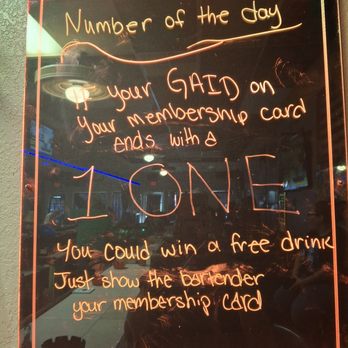 Number of the day
If your GAID on
your membership card
ends with a
1 ONE
You could win a free drink
Just show the bartender
your membership card